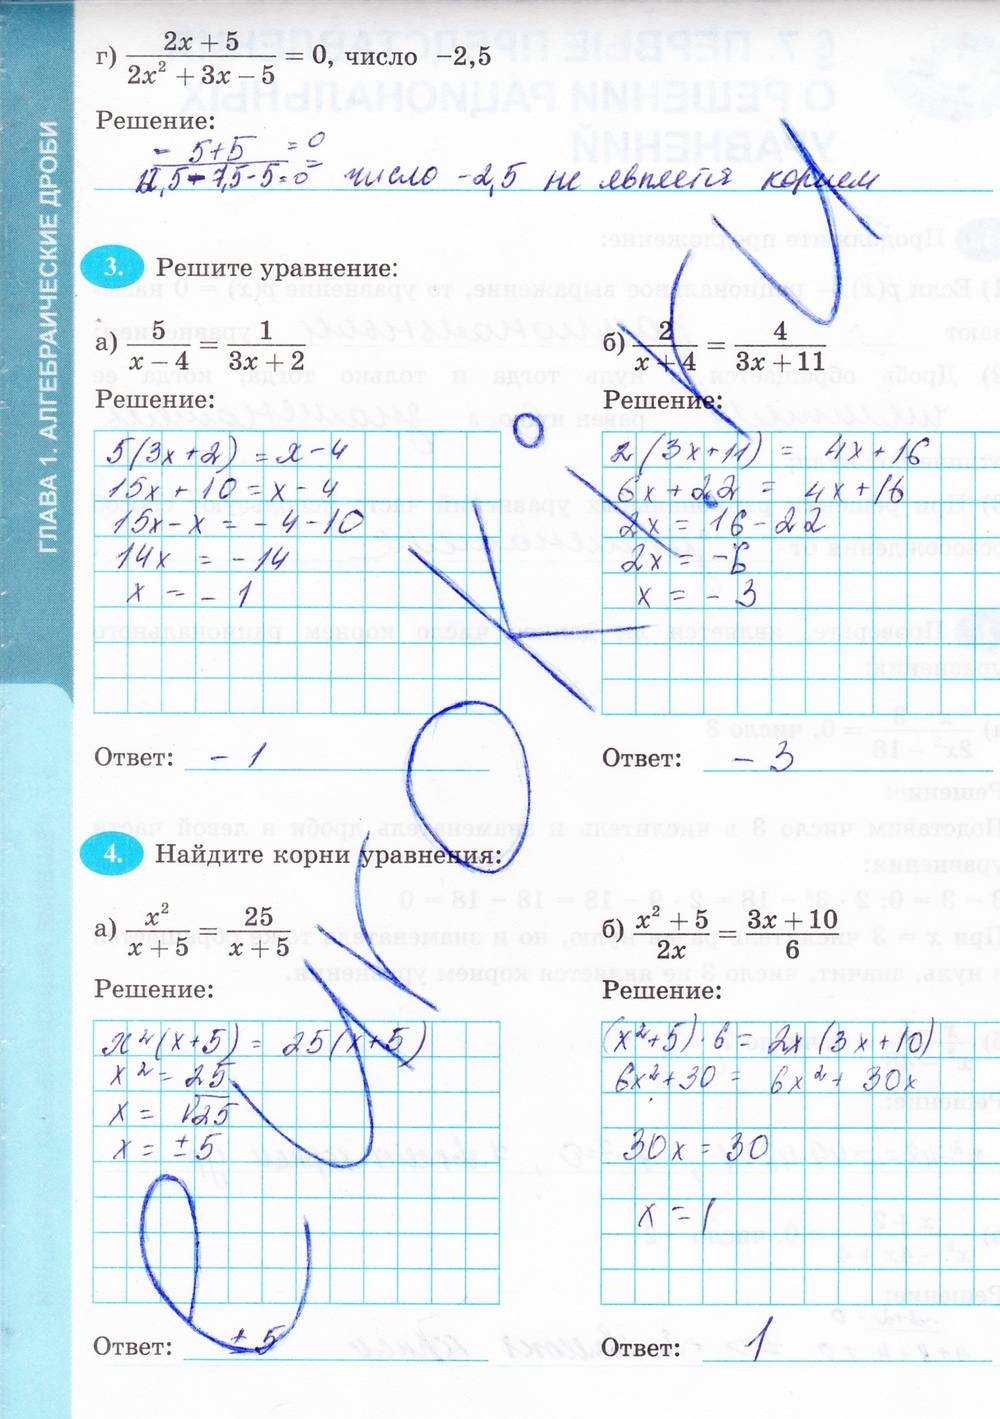 ГЛАВА 1. АЛГЕБРАИЧЕСКИЕ ДРОБИ
г) (2x + 5)/(2x² + 3x − 5) = 0, число −2,5
Решение:
- 5+5 = 0
12,5 - 7,5 - 5 = 0 число -2,5 не является корнем
3. Решите уравнение:
а) 5/(x − 4) = 1/(3x + 2)
Решение:
5(3x+2) = x-4
15x + 10 = x - 4
15x - x = - 4 - 10
14x = - 14
x = - 1
Ответ: - 1
б) 2/(x + 4) = 4/(3x + 11)
Решение:
2(3x+11) = 4x+16
6x + 22 = 4x + 16
2x = 16 - 22
2x = -6
x = - 3
Ответ: - 3
4. Найдите корни уравнения:
а) x²/(x + 5) = 25/(x + 5)
Решение:
x²(x+5) = 25(x+5)
x² = 25
x = √25
x = ±5
Ответ: ± 5
б) (x² + 5)/2x = (3x + 10)/6
Решение:
(x²+5)·6 = 2x(3x+10)
6x²+30 = 6x² + 30x
30x = 30
x = 1
Ответ: 1